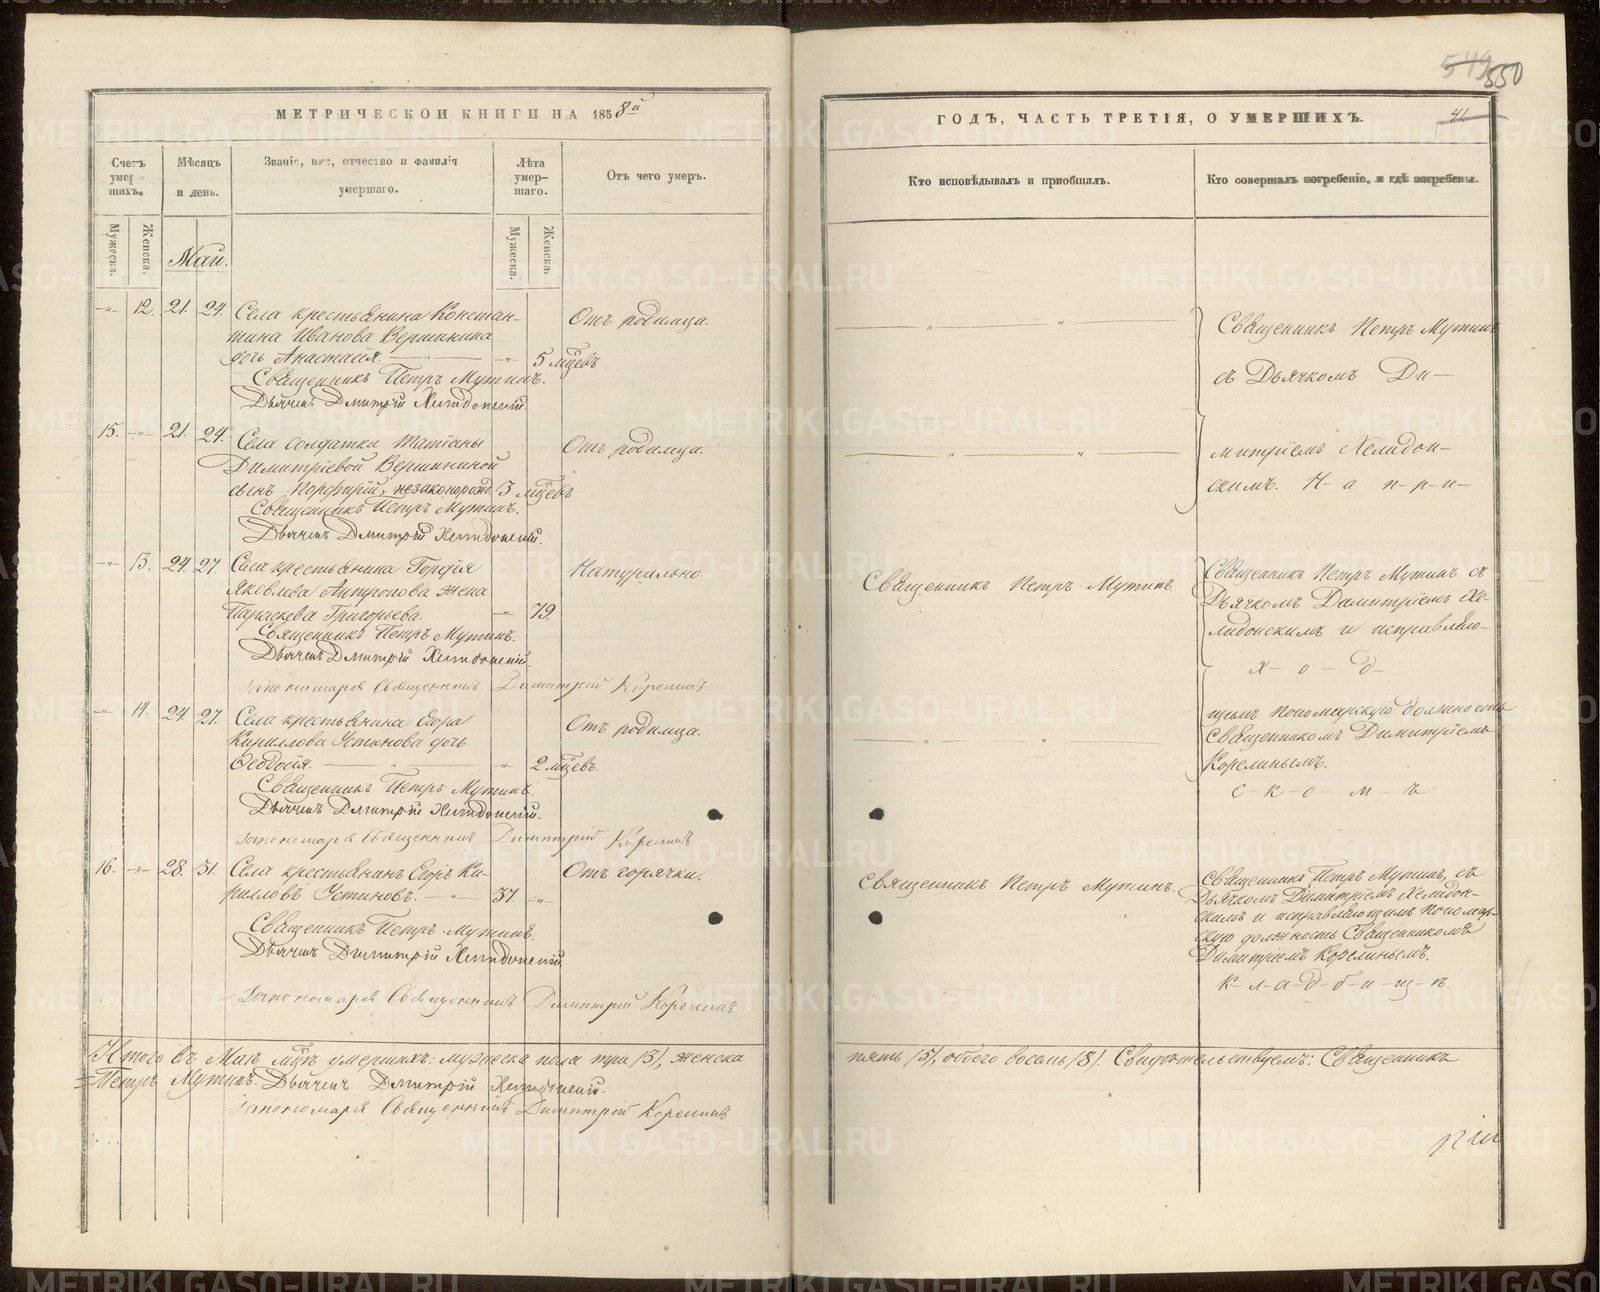 549 550
МЕТРИЧЕСКОЙ КНИГИ НА 1858й
Счетъ умершихъ.
Мѣсяцъ и день.
Званіе, имя, отчество и фамилія умершаго.
Лѣта умершаго.
Отъ чего умеръ.
Мужеска.
Женска.
Май.
Мужеска.
Женска.
-"- 12. 21. 24. Села крестьянина Констан-
тина Иванова Вершинина
дочь Анастасія. -"- 5 мцевъ
Отъ родимца.
Священникъ Петръ Мутинъ.
Дьячекъ Дмитрій Хелидонскій
15. -"- 21. 24. Села солдатки Татіаны
Димитріевой Вершининой
сынъ Порфирій, незаконорожд. 3 мцевъ
Отъ родимца.
Священникъ Петръ Мутинъ.
Дьячекъ Дмитрій Хелидонскій.
-"- 13. 24. 27. Села крестьянина Гордія
Яковлева Антропова жена
Параскева Григорьева. -"- 79.
Натурально.
Священникъ Петръ Мутинъ.
Дьячекъ Дмитрій Хелидонскій.
Священникъ Димитрій Корелинъ
-"- 14. 24. 27. Села крестьянина Егора
Кириллова Устинова дочь
Ѳеодосія. -"- -"- 2 мцевъ.
Отъ родимца.
Священникъ Петръ Мутинъ.
Дьячекъ Дмитрій Хелидонскій.
За пономаря Священникъ Димитрій Корелинъ
16. -"- 28. 31. Села крестьянинъ Егоръ Ки-
рилловъ Устиновъ. -"- 37. -"-
Отъ горячки.
Священникъ Петръ Мутинъ.
Дьячекъ Дмитрій Хелидонскій
За пономаря Священникъ Димитрій Корелинъ
Итого въ Маѣ мцѣ умершихъ: мужеска пола три (3), женска
Петръ Мутинъ. Дьячекъ Дмитрій Хелидонскій.
За пономаря Священникъ Димитрій Корелинъ
ГОДЪ, ЧАСТЬ ТРЕТІЯ, О УМЕРШИХЪ.
41
Кто исповѣдывалъ и пріобщалъ.
Кто совершалъ погребеніе, и гдѣ погребены.
-"- -"-
Священникъ Петръ Мутинъ
съ Дьячкомъ Ди-
-"- -"-
митріемъ Хелидон-
скимъ. Н-а п-р-и-
Священникъ Петръ Мутинъ.
Священникъ Петръ Мутинъ съ
Дьячкомъ Димитріемъ Хе-
лидонскимъ и исправляю-
х-о-д-
-"- -"-
щимъ пономарскую должность
Священникомъ Димитріемъ
Корелинымъ.
с-к-о-м-ъ
Священникъ Петръ Мутинъ.
Священникъ Петръ Мутинъ, съ
Дьячкомъ Димитріемъ Хелидон-
скимъ и исправляющимъ пономар-
скую должность Священникомъ
Димитріемъ Корелинымъ.
к-л-а-д-б-и-щ-ѣ.
пять (5), обоего восемь (8). Свидѣтельствуемъ: Священникъ
METRIKI.GASO-URAL.RU